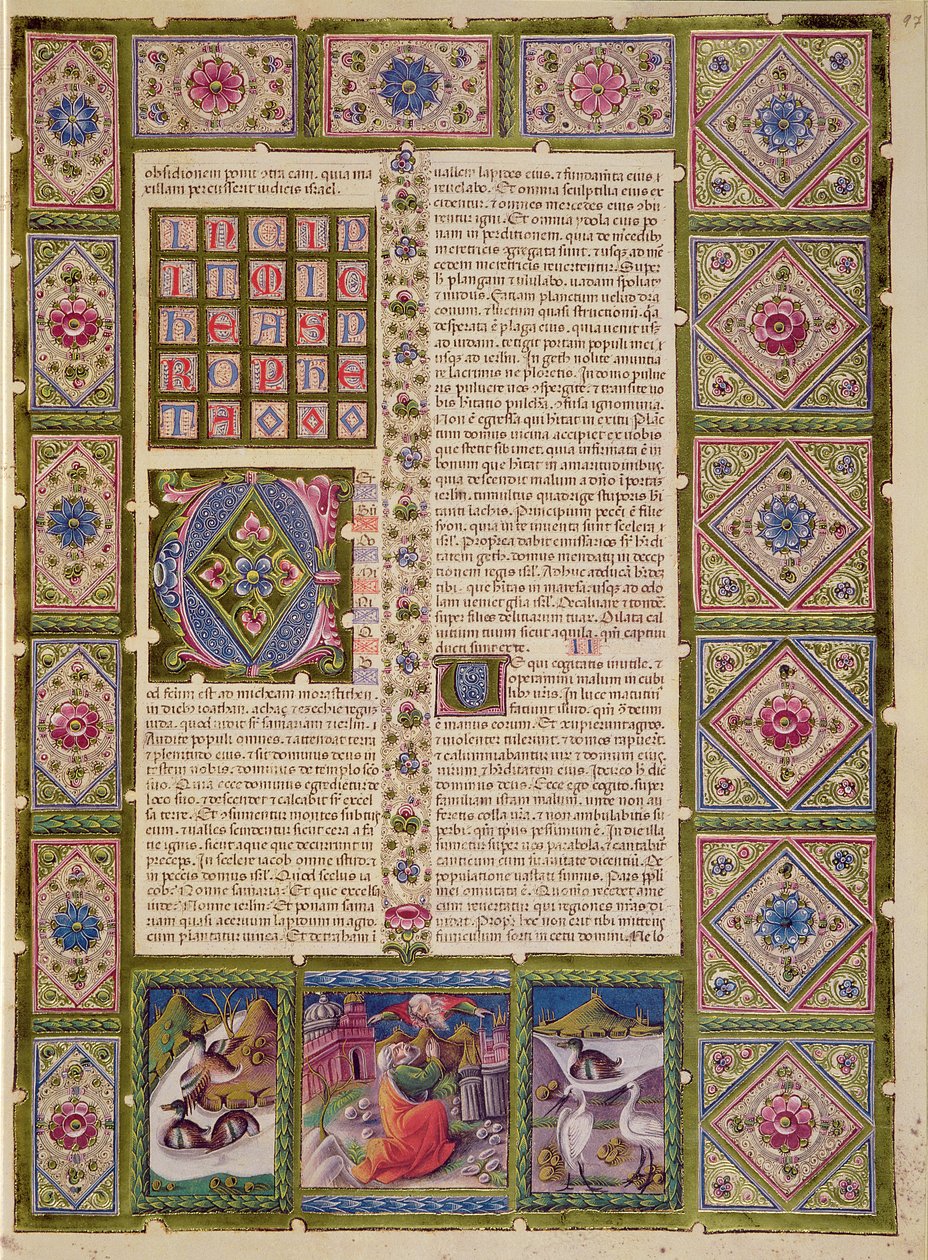 97
obsidionem ponit contra eam. quia ma
xillam percusserit iudicis israel.
INCIP
IT MIC
HEAS P
ROPHE
TA
od factum est ad micheam morasthiten
in dieb ioathan. achaz. ezechie regis
iuda. quod uidit sr samariam et ierlm.
Audite populi omnes. et attendat terra
et plenitudo eius. et sit dominus deus in
testem uobis. dominus de templo sco
suo. Quia ecce dominus egredietur de
loco suo. et descendet et calcabit sr excel
sa terre. Et consumentur montes subtus
eum. et ualles scindentur sicut cera a fa
cie ignis. sicut aque que decurrunt in
preceps. In scelere iacob omne istud. et
in peccatis domus isrl. Quod scelus ia
cob. Nonne samaria. Et que excelsa
iude. Nonne ierlm. Et ponam sama
riam quasi aceruum lapidum in agro
cum plantatur uinea. Et detraham in
uallem lapides eius. et fundamta eius
reuelabo. Et omnia sculptilia eius con
cidentur. et omnes mercedes eius obu
rentur igni. Et omnia ydola eius po
nam in perditionem. quia de mcedib
meretricis congregata sunt. et usque ad mer
cedem meretricis reuertentur. Super
h plangam et ululabo. uadam spoliat
et nudus. Faciam planctum uelud dra
conum. et luctum quasi structionum. qa
desperata est plaga eius. quia uenit usque
ad iudam. tetigit portam populi mei
usque ad ierlm. In geth nolite anuntia
re lacrimis ne ploretis. In domo pulue
ris puluere uos conspergite. et transite uo
bis habitatio pulchra. confusa ignominia.
Non est egressa qui habitat in exitu. Planc
tum domus uicina accipiet ex uobis
que stetit sibimet. quia infirmata est in
bonum que habitat in amaritudinibus.
quia descendit malum a dno in portam
ierlm. tumultus quadrige stuporis habi
tanti lachis. Principium peccati est filie
syon. quia in te inuenta sunt scelera
isrl. Propterea dabit emissarios sr heredi
tatem geth. domus mendatii in decep
tionem regis isrl. Adhuc adducam heredem
tibi. que habitas in maresa. usque ad odo
lam ueniet glia isrl. Decaluare et tondere
super filios deliciarum tuarum. Dilata cal
uitium tuum sicut aquila. qm captiui
ducti sunt ex te. II
Ue qui cogitatis inutile. et
operamini malum in cubi
libus uris. In luce matutina
faciunt illud. qm contra deum
est manus eorum. Et concupierunt agros.
et uiolenter tulerunt. et domos rapuerunt
et calumniabantur uirum et domum eius.
uirum et hereditatem eius. Idcirco hec dicit
dominus deus. Ecce ego cogito super
familiam istam malum. unde non au
feretis colla ura. et non ambulabitis su
perbi. qm tempus pessimum est. In die illa
sumetur super uos parabola. et cantabitur
canticum cum suauitate dicentium. De
populatione uastati sumus. Pars populi
mei commutata est. Quomodo recedet a me
cum reuertatur qui regiones uras di
uidat. Propter hoc non erit tibi mittens
funiculum sortis in cetu domini. Ne lo